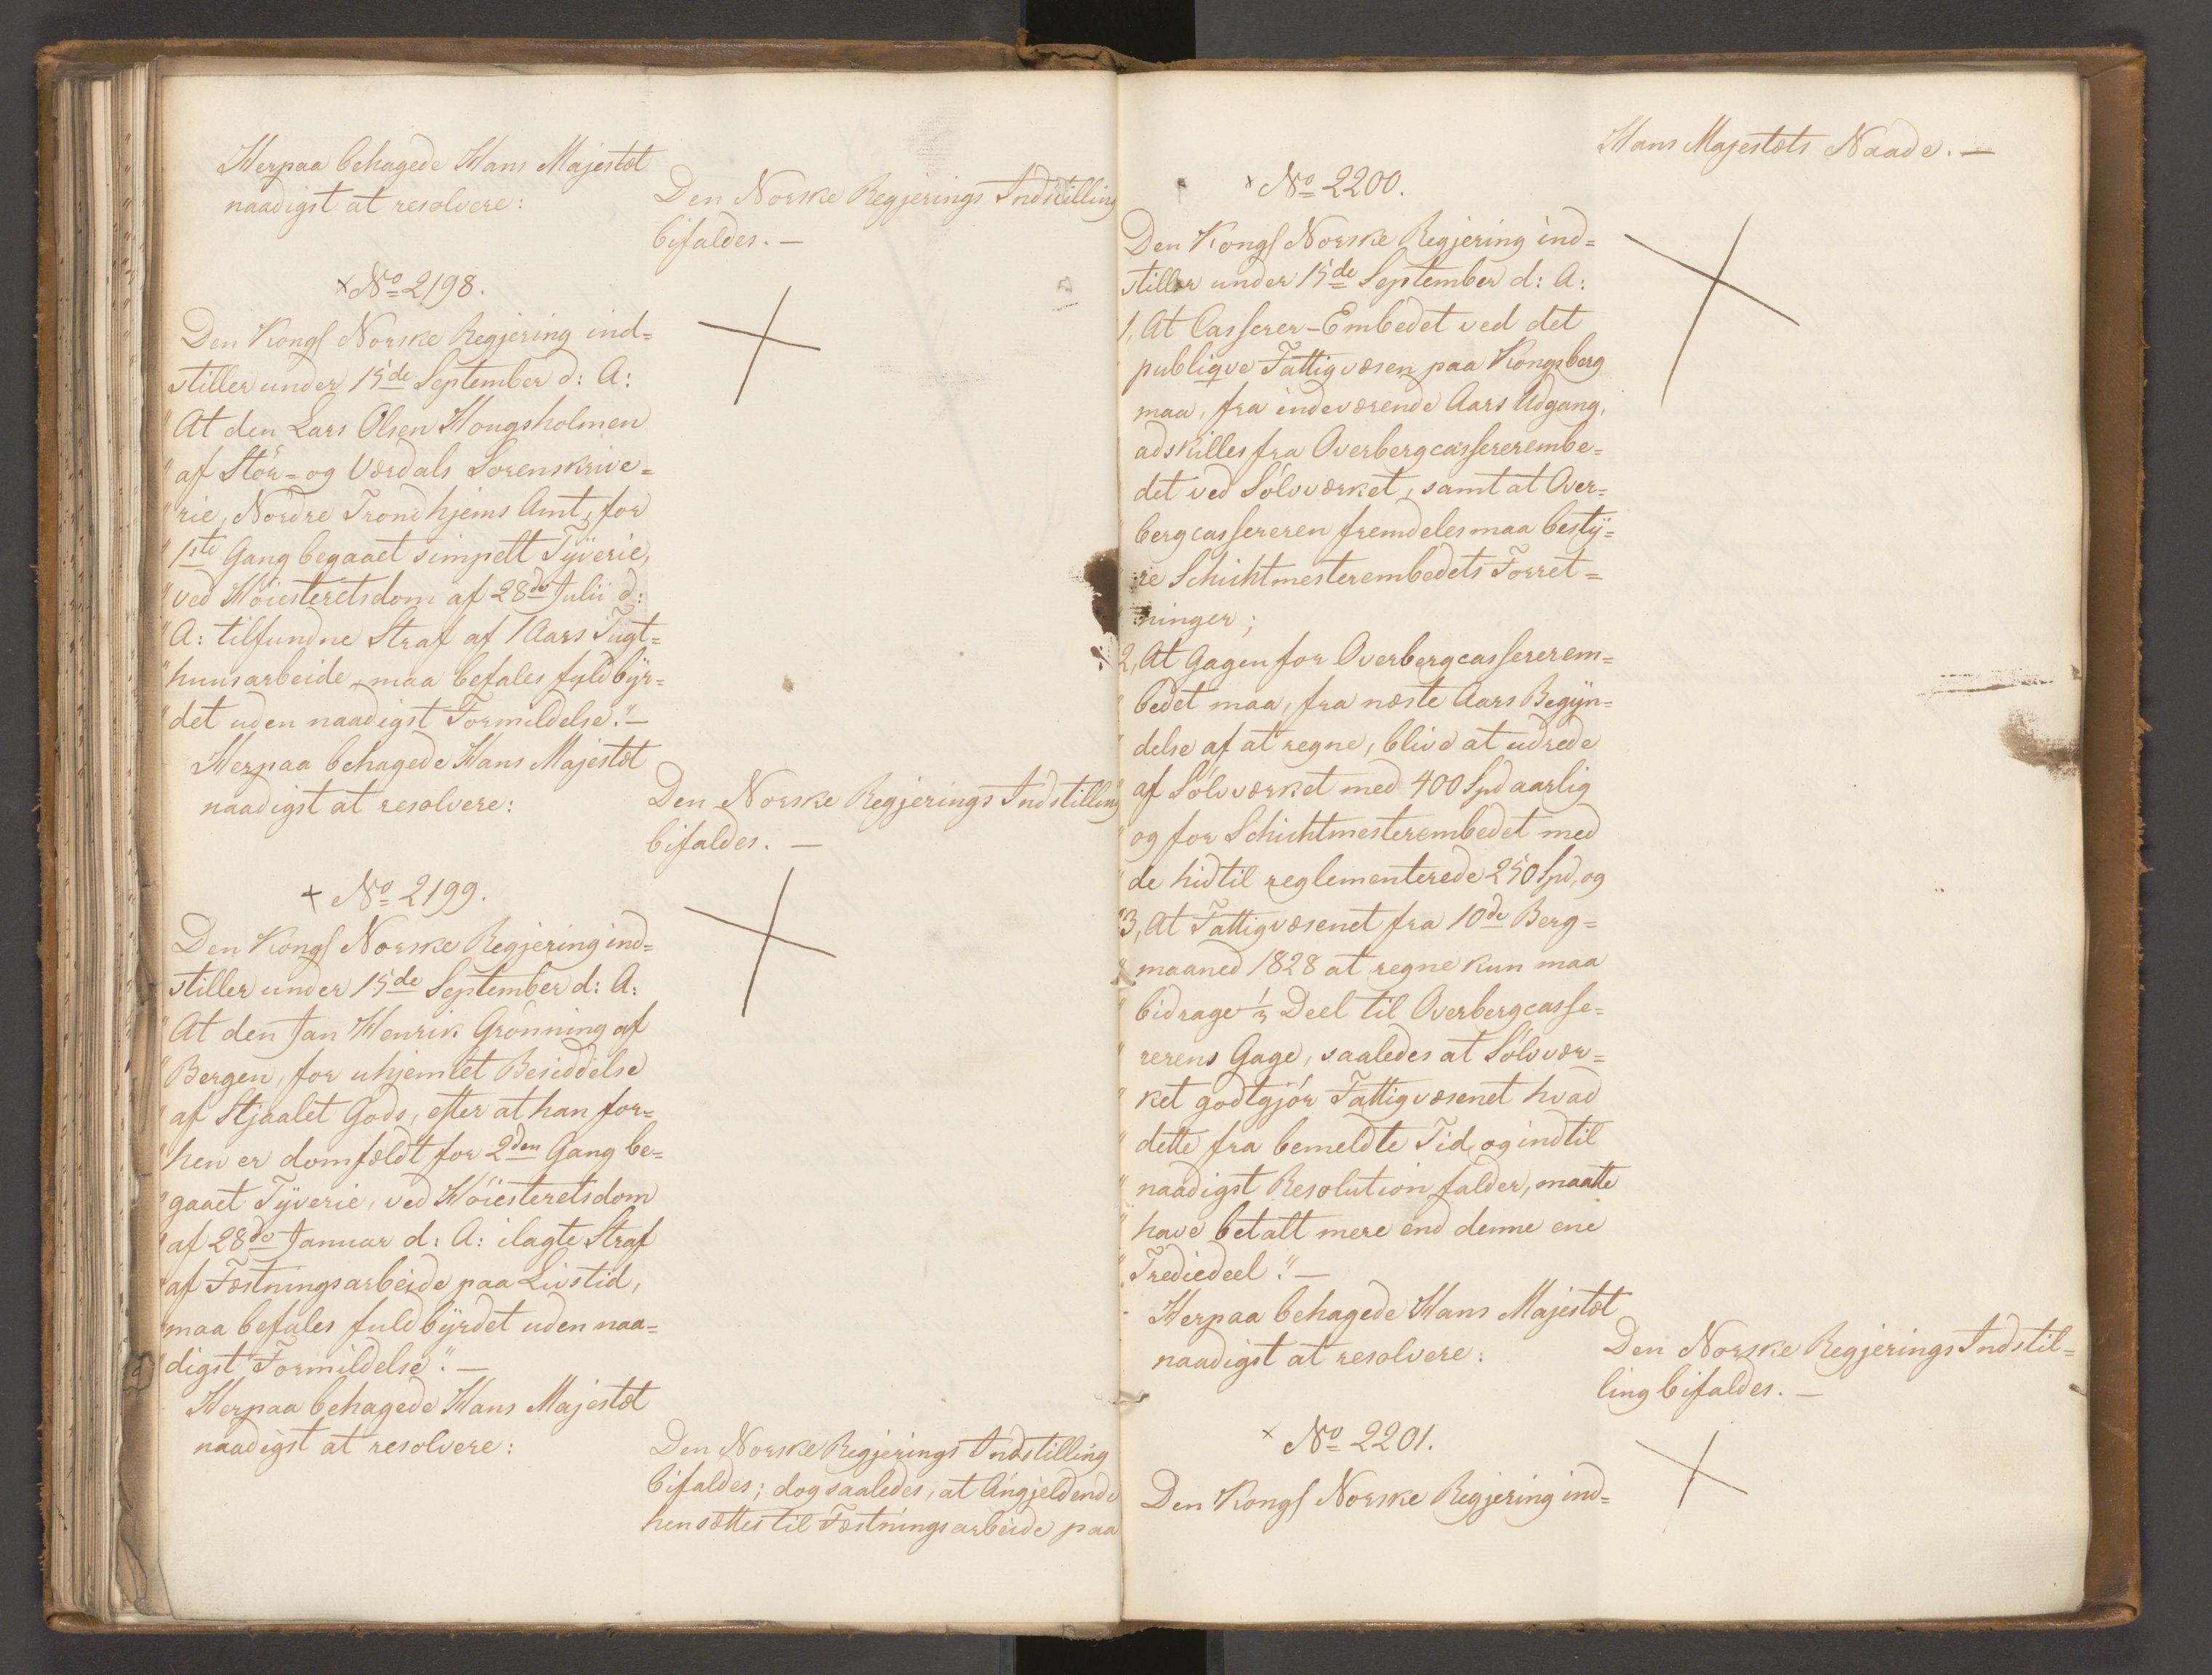 Herpaa behagede Hans Majestæt
naadigst at resolvere:
Den Norske Regjerings Indstilling
bifaldes. —
× No 2198.
Den Kongl Norske Regjering ind=
stiller under 15de September d: A:
"At den Lars Olsen Hougsholmen
"af Stör= og Værdals Sorenskrive=
"rie, Nordre Trondhjems Amt, for
"1ste Gang begaaet simpelt Tÿverie,
"ved Höiesteretsdom af 28de Julii d:
"A: tilfundne Straf af 1 Aars Tugt=
"huusarbeide, maa befales fuldbÿr=
"det uden naadigst Formildelse." —
Herpaa behagede Hans Majestæt
naadigst at resolvere:
Den Norske Regjerings Indstilling
bifaldes. —
× No 2199.
Den Kongl Norske Regjering ind=
stiller under 15de September d: A:
"At den Jan Henrik Grönning af
"Bergen, for uhjemlet Besiddelse
"af Stjaalet Gods, efter at han for=
"hen er domfældt for 2den Gang be=
"gaaet Tÿverie, ved Höiesteretsdom
"af 28de Januar d: A: ilagte Straf
"af Fæstningsarbeide paa Livstid,
"maa befales fuldbÿrdet uden naa=
"digst Formildelse." —
Herpaa behagede Hans Majestæt
naadigst at resolvere:
Den Norske Regjerings Indstilling
bifaldes; dog saaledes, at Angjeldende
hensættes til Fæstningsarbeide paa
Hans Majestæts Naade. —
× No 2200.
Den Kongl Norske Regjering ind=
stiller under 15de September d: A:
1, At Casserer-Embedet ved det
publiqve Fattigvæsen paa Kongsberg
maa, fra indeværende Aars Udgang,
adskilles fra Overbergcassererembe=
det ved Sölvværket, samt at Over=
bergcassereren fremdeles maa bestÿ=
re Schichtmesterembedets Forret=
ninger;
2, At Gagen for Overbergcassererem=
"bedet maa, fra næste Aars Begÿn=
"delse af at regne, blive at udrede
"af Sölvværket med 400 Spd aarlig
"og for Schichtmesterembedet med
"de hidtil reglementerede 250 Spd, og
"3, At Fattigvæsenet fra 10de Berg=
"maaned 1828 at regne kun maa
"bidrage 1/3 Deel til Overbergcasse=
"rerens Gage, saaledes at Sölvvær=
"ket godtgjör Fattigvæsenet hvad
"dette fra bemeldte Tid og indtil
"naadigst Resolution falder, maatte
"have betalt mere end denne ene
"Trediedeel." —
Herpaa behagede Hans Majestæt
naadigst at resolvere:
Den Norske Regjerings Indstil=
ling bifaldes. —
× No 2201.
Den Kongl Norske Regjering ind=